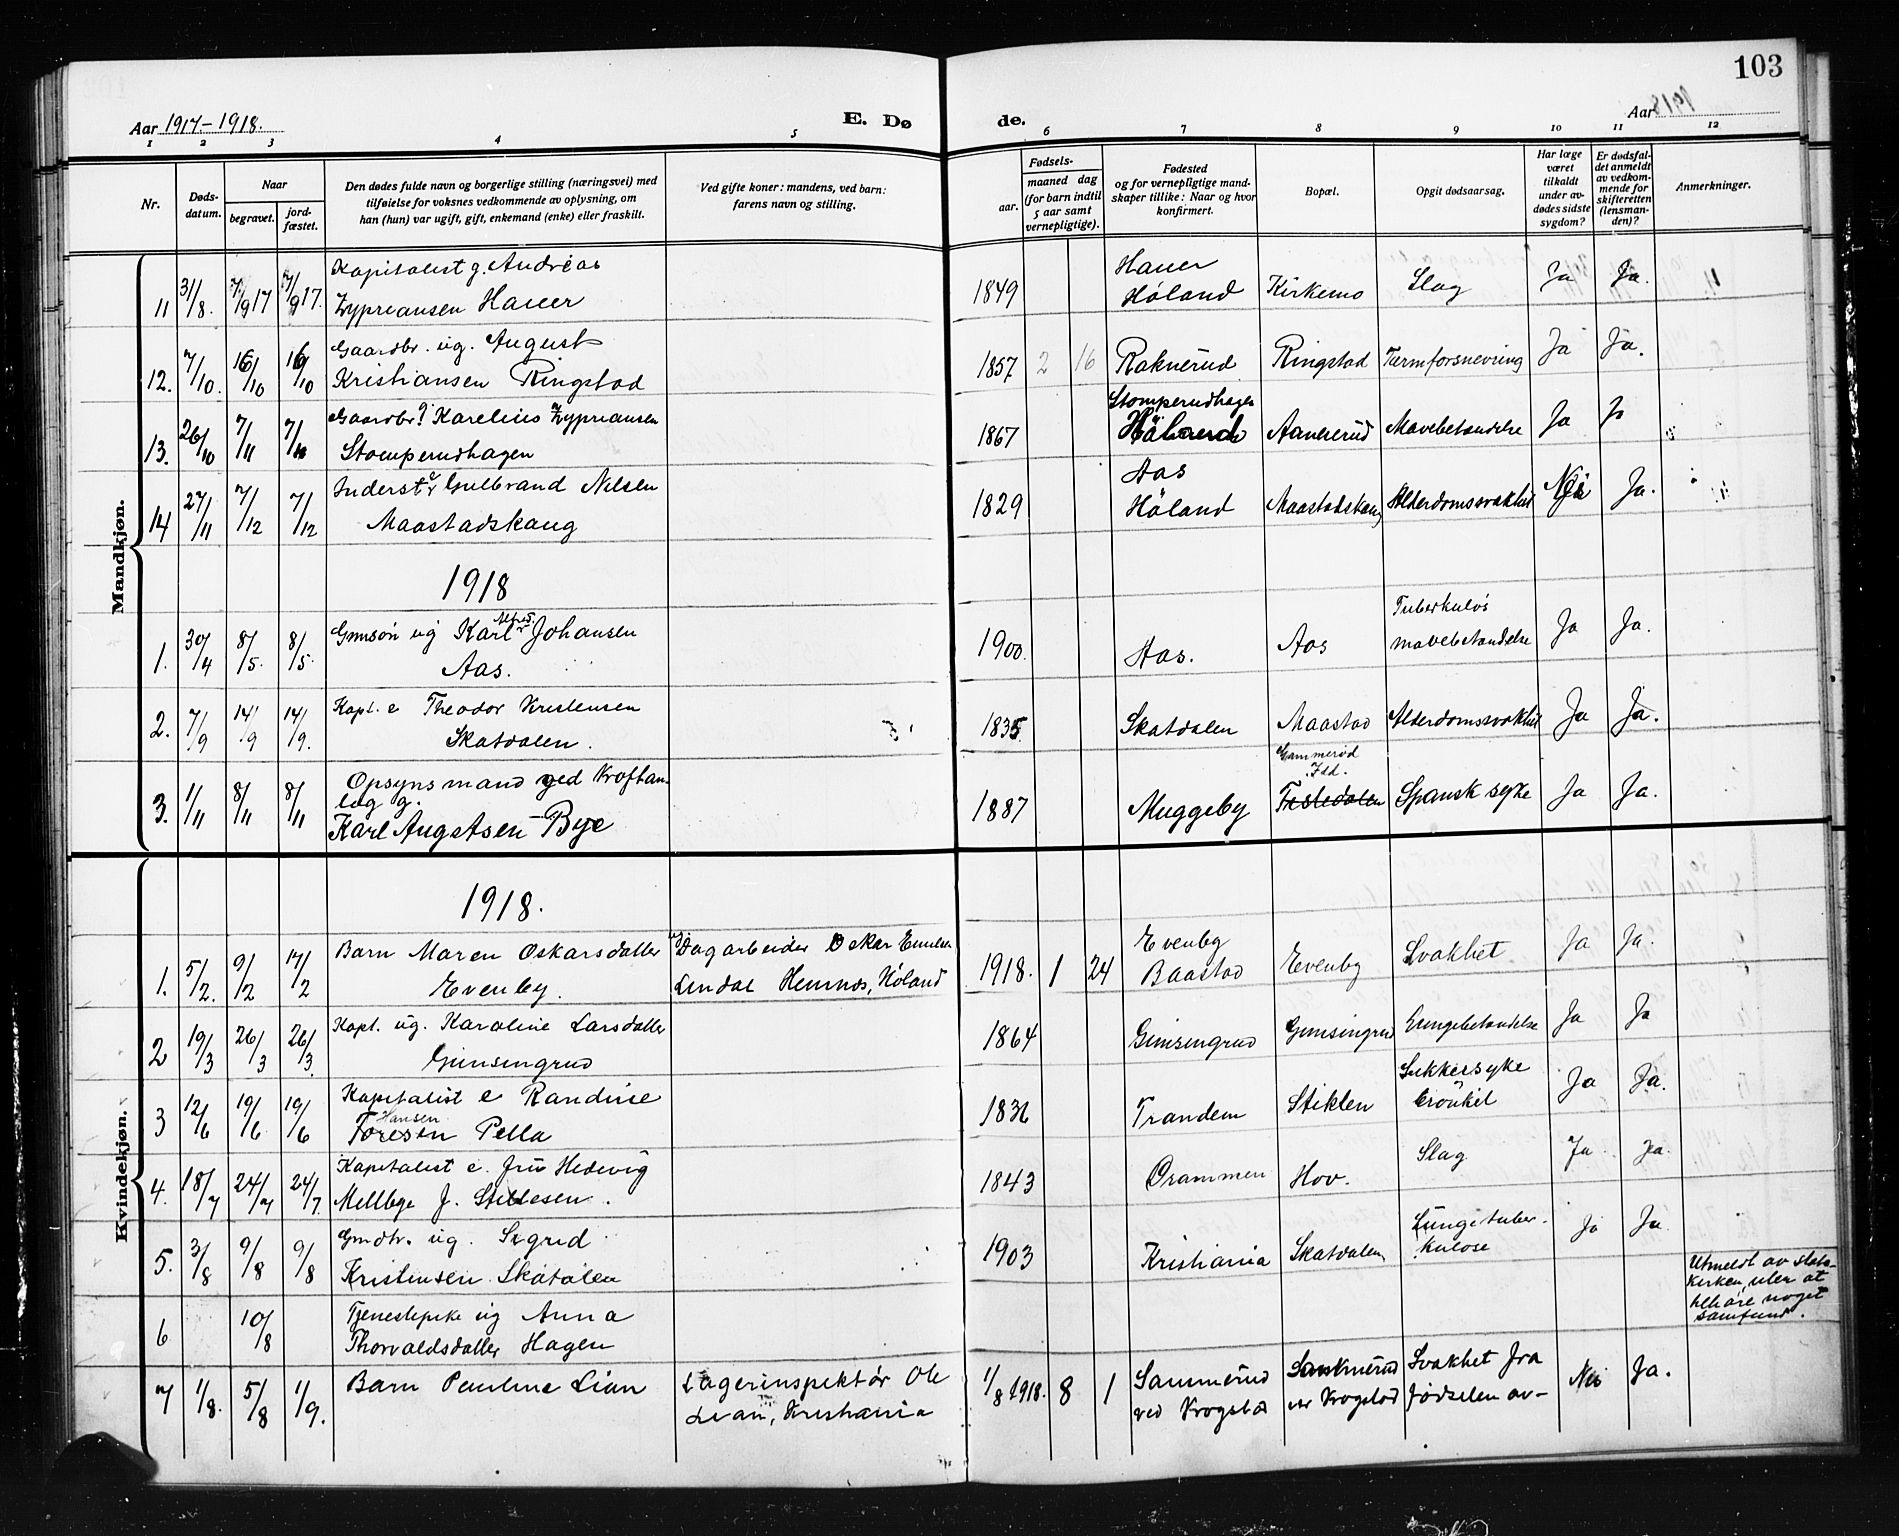 103
Aar 1917-1918.
E. Dø
de.
Aar 1918
1 2 3 4 5 6 7 8 9 10 11 12
Nr.
Døds-
datum.
Naar
begravet.
jord-
fæstet.
Den dødes fulde navn og borgerlige stilling (næringsvei) med
tilføielse for voksnes vedkommende av oplysning, om
han (hun) var ugift, gift, enkemand (enke) eller fraskilt.
Ved gifte koner: mandens, ved barn:
farens navn og stilling.
Fødsels-
aar.
maaned dag
(for barn indtil
5 aar samt
vernepligtige).
Fødested
og for vernepligtige mand-
skaper tillike: Naar og hvor
konfirmert.
Bopæl.
Opgit dødsaarsag.
Har læge
været
tilkaldt
under av-
dødes sidste
sygdom?
Er dødsfal-
det anmeldt
av vedkom-
mende for
skifteretten
(lensman-
den)?
Anmerkninger.
Mandkjøn.
11 31/8. 7/9 17 7/9 17. Kapitalist g. Andreas
Zypriansen Hauer
1849 Hauer
Høland Kirkemo Slag Ja Ja.
12. 7/10. 16/10 16/10 Gaardbr. ug. August
Kristiansen Ringstad
1857 2 16 Raknerud Ringstad Tarmforsnevring Ja Ja.
13. 26/10 7/11 7/11 Gaardbr. g. Karelius Zypriansen
Stomperudhagen
1867 Stomperudhagen
Höland Aanerud Mavebetændelse Ja Ja
14 27/11 7/12 7/12 Inderst e Gulbrand Nilsen
Maastadskaug
1829 Aas
Höland Maastadskaug Alderdomssvakhet Nei Ja.
1918
1. 30/4 8/5. 8/5. Gmsøn ug Karl Alfred Johansen
Aas.
1900. Aas. Aas Tuberkuløs
mavebetændelse Ja Ja.
2. 7/9 14/9 14/9. Kapt. e Theodor Kristensen
Skatdalen.
1835 Skatdalen Maastad Alderdomssvakhet Ja Ja.
3. 1/11 8/11 8/11 Opsynsmand ved Kraftan-
læg g.
Karl Augstsen Bye
1887 Muggeby Gammerød
Idd.
Tistedalen Spansk syke Ja Ja.
Kvindekjøn.
1918.
1. 5/2. 9/2 17/2 Barn Maren Oskarsdatter
Evenby.
ug Dagarbeider Oskar Emilsen
Lindal Hemnes, Høland
1918. 1 24 Evenby
Baastad Evenby Svakhet Ja Ja.
2 19/3 26/3 26/3. Kapt. ug. Karoline Larsdatter
Gimsingrud
1864 Gimsingrud Gimsingrud Lungebetændelse Ja Ja
3 12/6 19/6 19/6 Kapitalist e Randine
Hansen
Toresen Pella
1836 Trandem Stiklen Sukkersyke
bronkit Ja Ja.
4. 18/7 24/7 24/7. Kapitalist e. fru Hedevig
Mellbye f. Stillesen.
1843 Drammen Hov. Slag Ja Ja.
5. 3/8 9/8 9/8 Gmdtr. ug. Sigrid
Kristensen Skatdalen
1903 Kristiania Skatdalen Lungetuber-
kulose Ja Ja
6 10/8 Tjenestepike ug Anna
Thorvaldsdatter Hagen
Utmeldt av stats-
kirken, uten at
tilhøre noget
samfund.
7 1/8. 5/8 1/9. Barn Pauline Lian
Lagerinspektør Ole
Lian, Kristiania
1/8 1918. 8 1 Sammerud
ved Krogstad Sammerud
ver Krogstad Svakhet fra
fødselen av- Nei Ja.